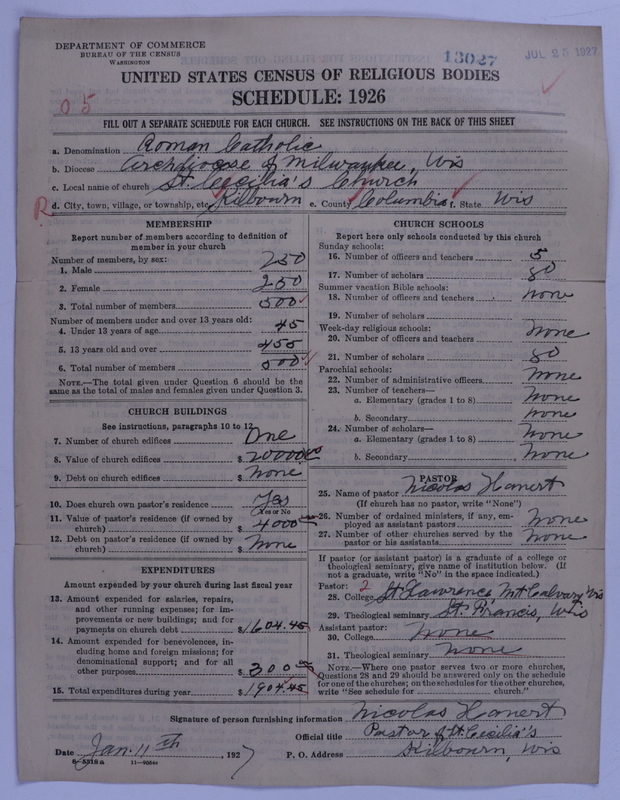 DEPARTMENT OF COMMERCE
BUREAU OF THE CENSUS
WASHINGTON
13027
JUL 25 1927
UNITED STATES CENSUS OF RELIGIOUS BODIES
SCHEDULE: 1926
05
FILL OUT A SEPARATE SCHEDULE FOR EACH CHURCH. SEE INSTRUCTIONS ON THE BACK OF THIS SHEET
a. Denomination Roman Catholic
b. Diocese Archdiocese of Milwaukee, Wis
c. Local name of church St. Cecilia's Church
R d. City, town, village, or township, etc. Kilbourn e. County Columbia f. State Wis
MEMBERSHIP
Report number of members according to definition of
member in your church
Number of members, by sex:
1. Male 250
2. Female 250
3. Total number of members 500
Number of members under and over 13 years old:
4. Under 13 years of age 45
5. 13 years old and over 455
6. Total number of members 500
NOTE.—The total given under Question 6 should be
same as the total of males and females given under Question 3.
CHURCH BUILDINGS
See instructions, paragraphs 10 to 12
7. Number of church edifices One
8. Value of church edifices $ 20000
9. Debt on church edifices $ None
10. Does church own pastor's residence Yes
Yes or No
11. Value of pastor's residence (if owned by
church) $ 4000
12. Debt on pastor's residence (if owned by
church) $ None
EXPENDITURES
Amount expended by your church during last fiscal year
13. Amount expended for salaries, repairs,
and other running expenses; for im-
provements or new buildings; and for
payments on church debt $ 1604.45
14. Amount expended for benevolences, in-
cluding home and foreign missions; for
denominational support; and for all
other purposes $ 300
15. Total expenditures during year $ 1904.45
CHURCH SCHOOLS
Report here only schools conducted by this church
Sunday schools:
16. Number of officers and teachers 5
17. Number of scholars 80
Summer vacation Bible schools:
18. Number of officers and teachers None
19. Number of scholars
Week-day religious schools:
20. Number of officers and teachers None
21. Number of scholars 80
Parochial schools:
22. Number of administrative officers None
23. Number of teachers—
a. Elementary (grades 1 to 8) None
b. Secondary None
24. Number of scholars—
a. Elementary (grades 1 to 8) None
b. Secondary None
PASTOR
25. Name of pastor Nicolas Hanert
(If church has no pastor, write "None")
26. Number of ordained ministers, if any, em-
ployed as assistant pastors None
27. Number of other churches served by the
pastor or his assistants None
If pastor (or assistant pastor) is a graduate of a college or
theological seminary, give name of institution below. (If
not a graduate, write "No" in the space indicated.)
Pastor: 2
28. College St. Lawrence Mt Calvary Wis
29. Theological seminary St. Francis, Wis
Assistant pastor:
30. College None
31. Theological seminary None
NOTE.—Where one pastor serves two or more churches,
Questions 28 and 29 should be answered only on the schedule
for one of the churches; on the schedules for the other churches,
write "See schedule for church."
Signature of person furnishing information Nicolas Hanert
Official title Pastor of St. Cecilia's
Date Jan. 11th, 1927 P. O. Address Kilbourn, Wis
8—5318a